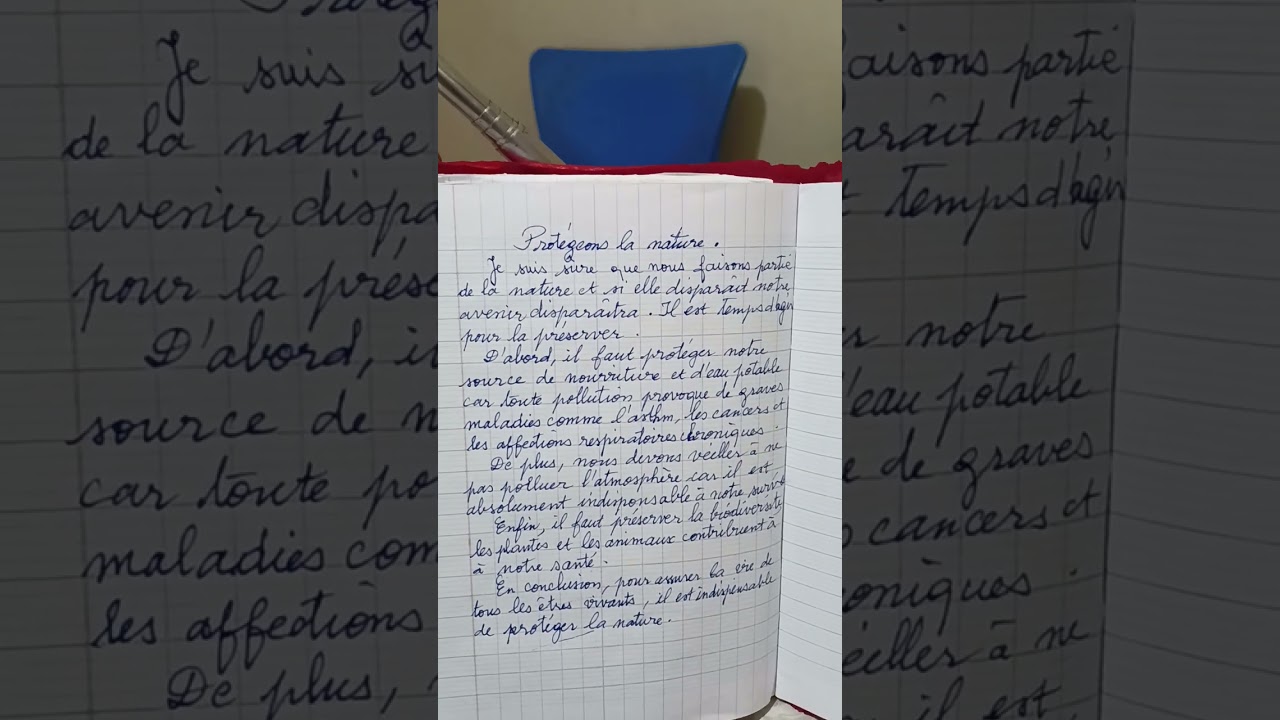 Protégeons la nature.
Je suis sûre que nous faisons partie
de la nature et si elle disparaît notre
avenir disparaîtra. Il est temps d'agir
pour la préserver.
D'abord, il faut protéger notre
source de nourriture et d'eau potable
car toute pollution provoque de graves
maladies comme l'asthm, les cancers et
les affections respiratoires chroniques.
De plus, nous devons veiller à ne
pas polluer l'atmosphère car il est
absolument indisponsable à notre survie
Enfin, il faut préserver la biodiversité
les plantes et les animaux contribuent à
à notre santé.
En conclusion, pour assurer la vie de
tous les êtres vivants, il est indispensable
de protéger la nature.